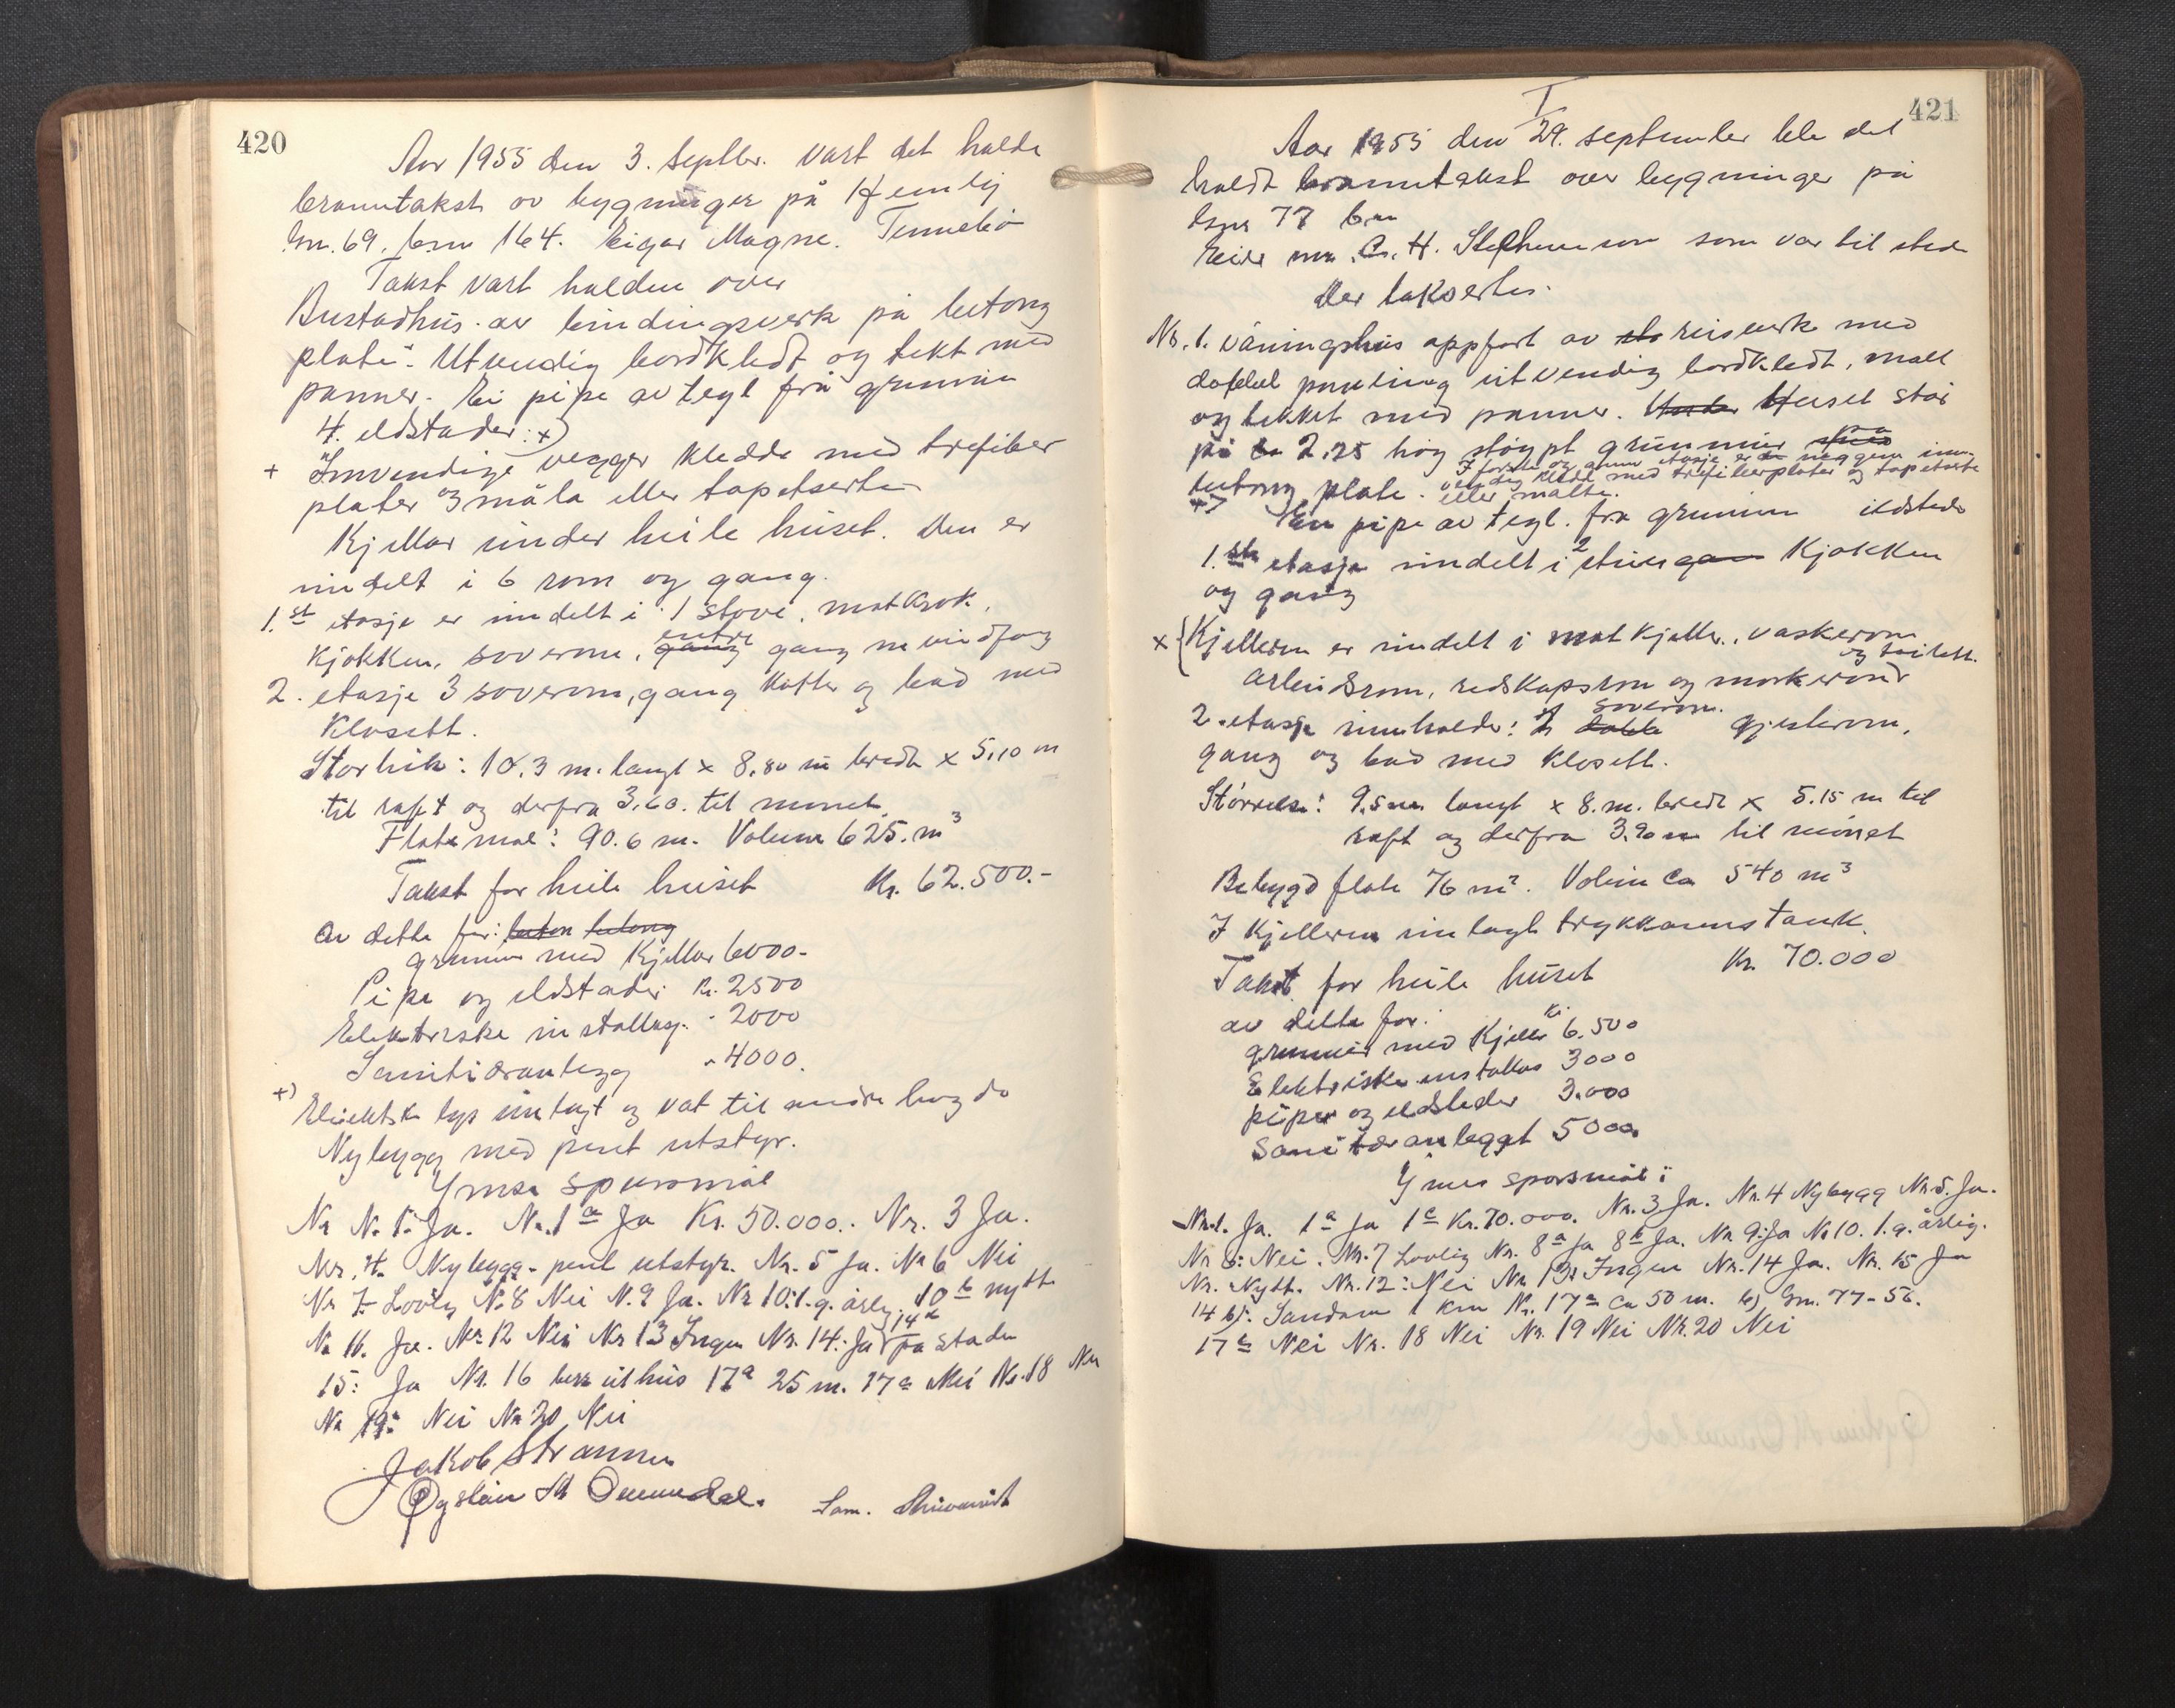 420
Aar 1955 den 3. Septbr. vart det halde
branntakst ov bygninger på
Gn. 69. bnr 164. Eigar Magne. Tennebö
Takst vart halden over
Bustadhús. av bindingsverk på betong
plate. Utvendig bordkledt og tekt med
panner. Ei pipe av tegl frå grunnen
4. eldstader: x)
+ Innvendige vegger kledde med trefiber
plater og måla eller tapetserte
Kjellar under heile húset. Den er
inndelt i 6 rom og gang.
1.st etasje er inndelt i 1 stove, matkrok,
kjøkken, soverom, gang entre gang m vindfang
2. etasje 3 soverom, gang kott og bad med
klosett.
Storleik: 10.3 m. langt x 8,80 m bredt x 5,10 m
til raft og derfra 3.60. til mønet
Flatemal: 90.6 m. Volum 625. m³
Takst for heile huset Kr. 62.500.-
Av dette for: beton betong
grunnen med Kjellar 6000-
Pipe og eldstader Kr. 2500
Elektriske installasj. - 2000
Sanitæranlegg - 4000.
+) Elektrisk lys innlagt og vat til
Nybygg med pent utstyr.
Ymse spursmål
Nr No 1. Ja. Nr. 1a Ja Kr. 50.000. Nr. 3 Ja.
Nr. 4. Nybygg - pent utstyr. Nr. 5 Ja. Nr 6 Nei
Nr 7. Lovleg Nr 8 Nei N. 9 Ja. Nr 10: 1. g. årleg. 10 b nytt
Nr 11. Ja. Nr 12 Nei Nr 13 Ingen Nr. 14. Ja 14a på staden
15: Ja Nr. 16 uthús 17a 25 m. 17c Nei Nr. 18 Nei
Nr 19: Nei Nr 20 Nei
Jakob Strammen
Øystein M
Lam.
421
I
Aar 1955 den 29. september ble det
holdt branntakst over bygninger på
Gnr 77 bnr
Eier C. H. Stephenson som var til stede
Der taksertes.
Nr. 1. våningshus oppført av reisverk med
dobbel panling utvendig bordkledt, malt
og tekket med panner. Under Huset står
på 2.25 høg støypt grunnmur på
betong plate. I første og annen etasje er veggene inn-
vendig kledd med trefiberplater og tapetserte
eller malte.
+> En pipe av tegl. fra grunnen ildsteder
1.ste etasje inndelt i 2 stuer gang Kjøkken
og gang
x { Kjelleren er inndelt i matkjeller, vaskerom
og toilett.
Arbeidsrom, redskapsrom og mørkerom
2. etasje inneholder: soverom. gjesterom,
gang og bad med klosett.
Størrelse: 9.5 m. langt x 8. m. bredt x 5.15 m til
raft og derfra 3.90 m til mønet
Bebygd flate 76 m². Volum ca 540 m³
I Kjelleren innlagt trykkvannstank
Takst for heile húset Kr. 70.000
av dette for:
grunnmur med Kjeller Kr. 6.500
Elektriske installas 3000
piper og ildsteder 3.000
Sanitæranlegget 5000
Ymes sporsmål:
Nr. 1. Ja. 1a Ja 1c Kr. 70.000. Nr. 3 Ja. Nr. 4 Nybygg Nr. 5. Ja.
Nr 6: Nei. Nr. 7 Lovlig Nr. 8a Ja 8b Ja. Nr 9: Ja Nr 10. 1. g. årlig.
Nr. Nytt. Nr. 12: Nei Nr 13: Ingen Nr. 14 Ja. Nr. 15 Ja
14 b): Sandane 1 km Nr. 17a ca 50 m. b) Gnr. 77-56.
17c Nei Nr. 18 Nei Nr. 19 Nei Nr. 20 Nei